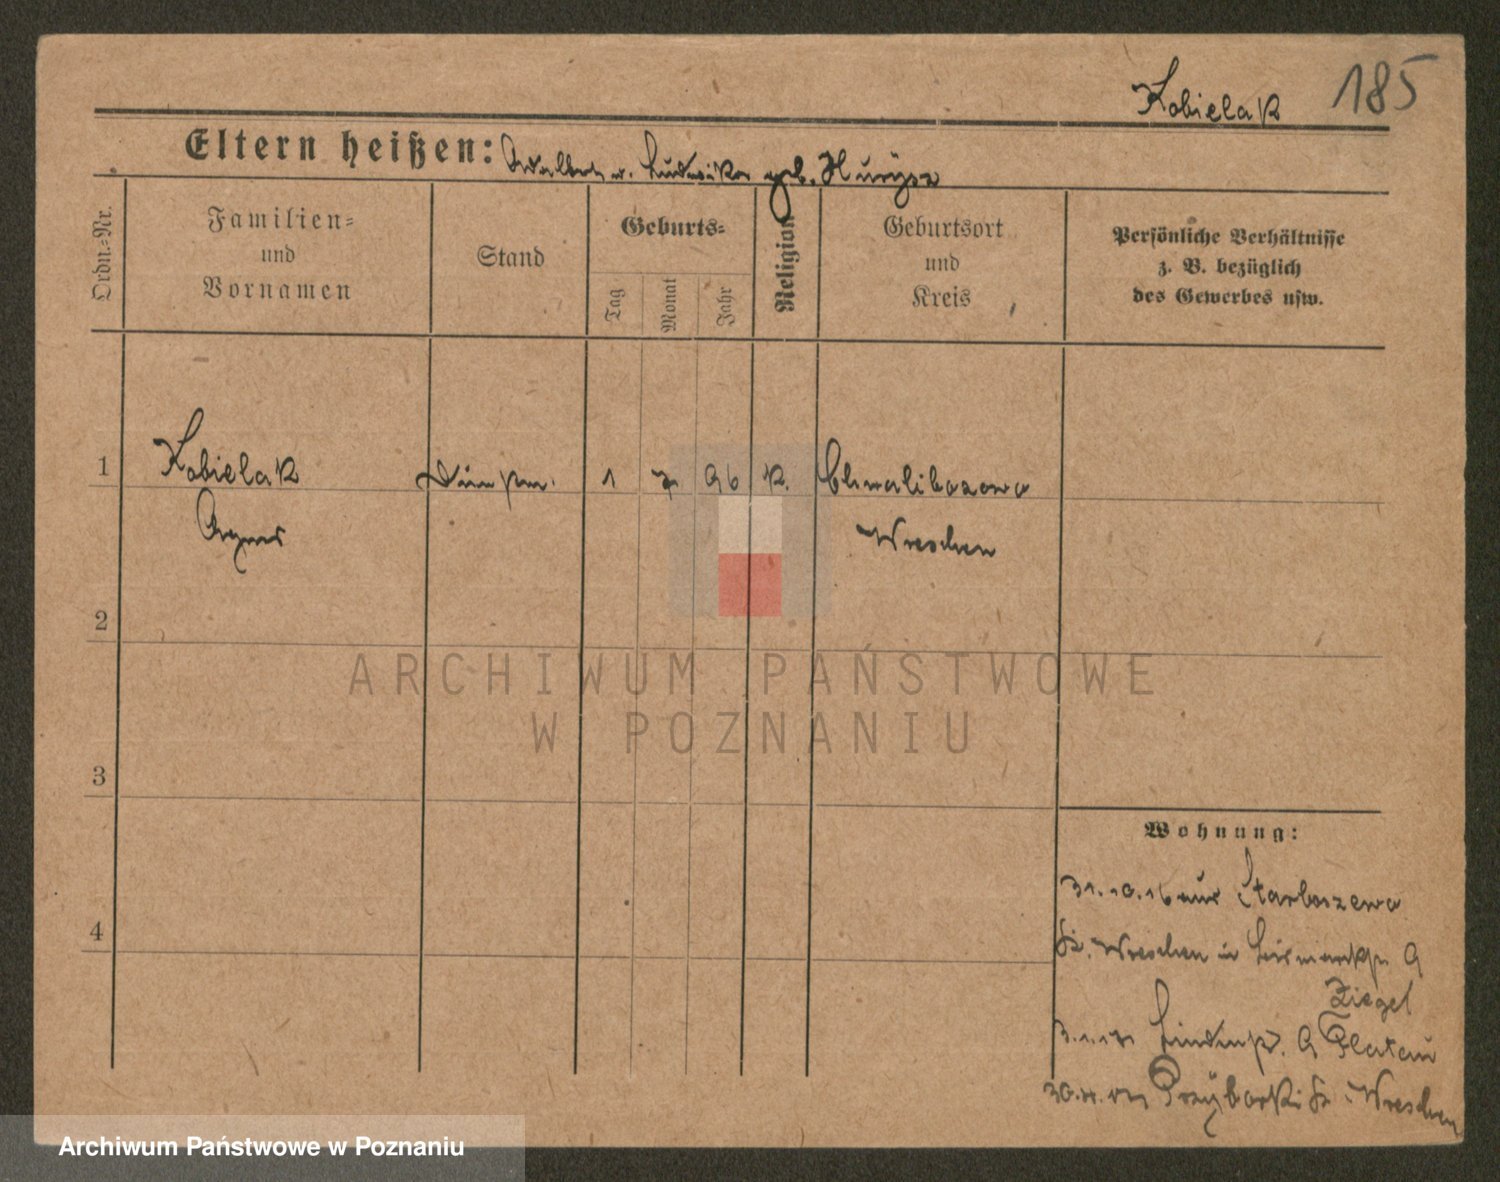 Kobielak 185
Eltern heißen: Ludwika geb.
Ordn.=Nr.
Familien=
und
Vornamen
Stand
Geburts=
Tag
Monat
Jahr
Religion
Geburtsort
und
Kreis
Persönliche Verhältnisse
z. B. bezüglich
des Gewerbes usw.
1 Kobielak 1 7 96 k. Chwalibogowo
Agnes Wreschen
2
3
4
Wohnung:
31.10.16 aus
Kr. Wreschen in 9
Ziegel
9 Flatau
Kr. Wreschen
ARCHIWUM PAŃSTWOWE
W POZNANIU
Archiwum Państwowe w Poznaniu